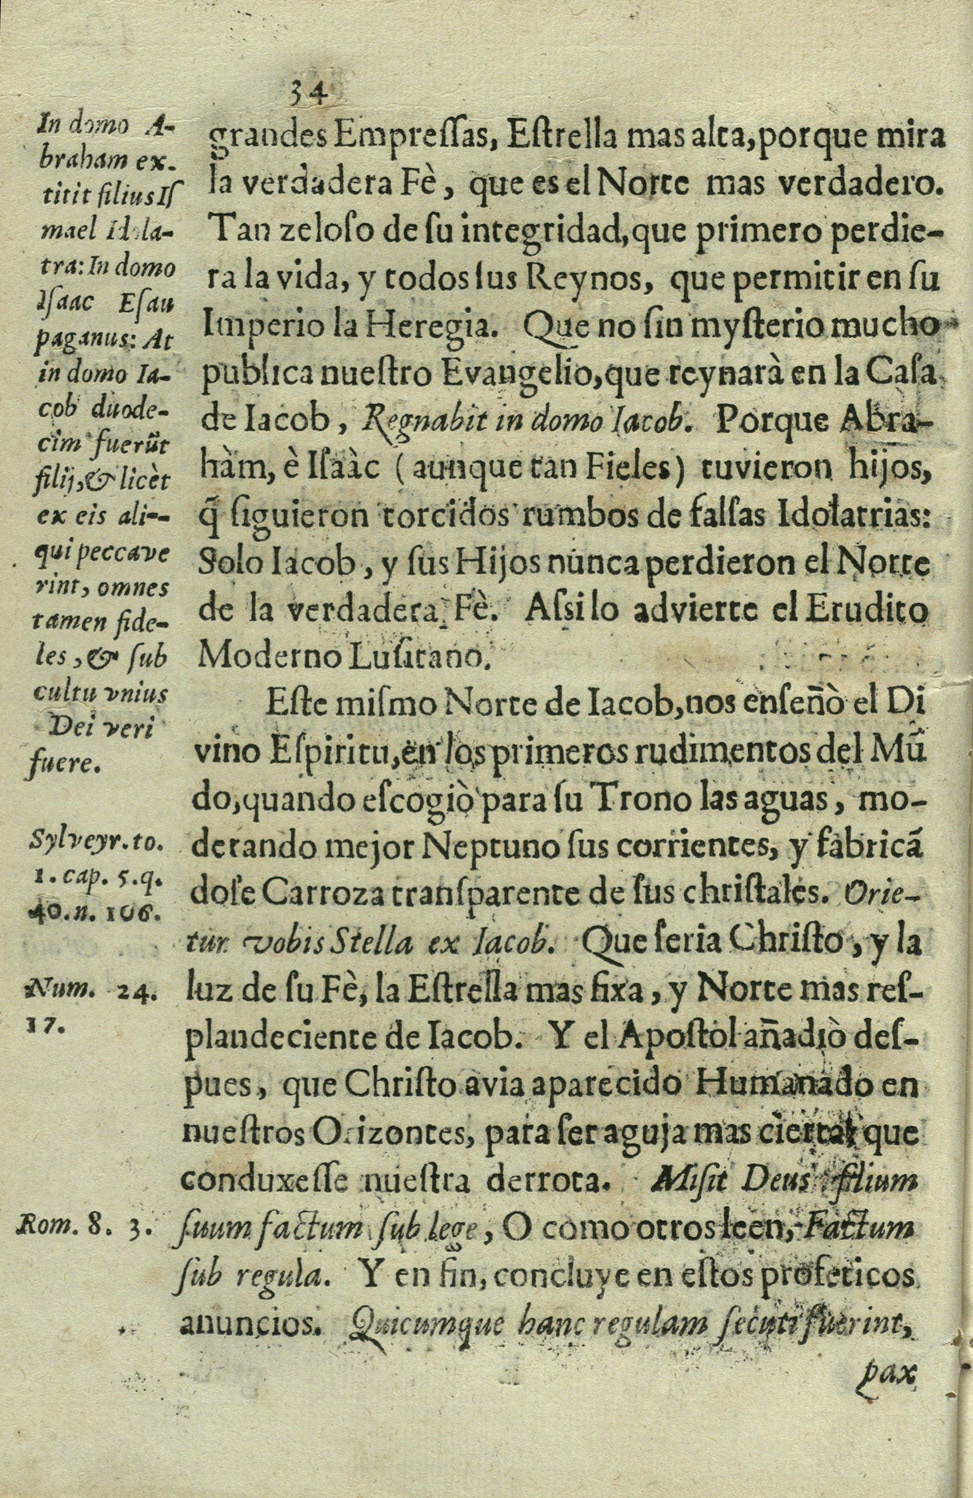 34
In domo A-
braham ex-
titit filius Iſ
mael Idola-
tra: In domo
Iſaac Eſau
paganus: At
in domo Ia-
cob duode-
cim fuerũt
filij, & licèt
ex eis ali--
qui peccave
rint, omnes
tamen fide-
les, & ſub
cultu vnius
Dei veri
fuere.
Sylveyr. to.
1. cap. 5. q.
40. n. 106.
Num. 24.
17.
Rom. 8. 3.
grandes Empreſſas, Eſtrella mas alta, porque mira
la verdadera Fè, que es el Norte mas verdadero.
Tan zeloſo de ſu integridad, que primero perdie-
ra la vida, y todos ſus Reynos, que permitir en ſu
Imperio la Heregia. Que no ſin myſterio mucho
publica nueſtro Evangelio, que reynarà en la Caſa
de Iacob, Regnabit in domo Iacob. Porque Abra-
hàm, è Iſaàc (aunque tan Fieles) tuvieron hijos,
q̃ ſiguieron torcidos rumbos de falſas Idolatrias:
Solo Iacob, y ſus Hijos nunca perdieron el Norte
de la verdadera Fè. Aſsi lo advierte el Erudito
Moderno Luſitano.
Eſte miſmo Norte de Iacob, nos enſeñò el Di
vino Eſpiritu, en los primeros rudimentos del Mũ
do, quando eſcogiò para ſu Trono las aguas, mo-
derando mejor Neptuno ſus corrientes, y fabricã
doſe Carroza tranſparente de ſus chriſtales. Orie-
tur vobis Stella ex Iacob. Que ſeria Chriſto, y la
luz de ſu Fè, la Eſtrella mas fixa, y Norte mas reſ-
plandeciente de Iacob. Y el Apoſtol añadiò deſ-
pues, que Chriſto avia aparecido Humanado en
nueſtros Orizontes, para ſer aguja mas cierta, que
conduxeſſe nueſtra derrota. Miſit Deus filium
ſuum factum ſub lege, O como otros leen, Factum
ſub regula. Y en fin, concluye en eſtos profeticos
anuncios. Quicumque hanc regulam ſecuti fuerint,
pax